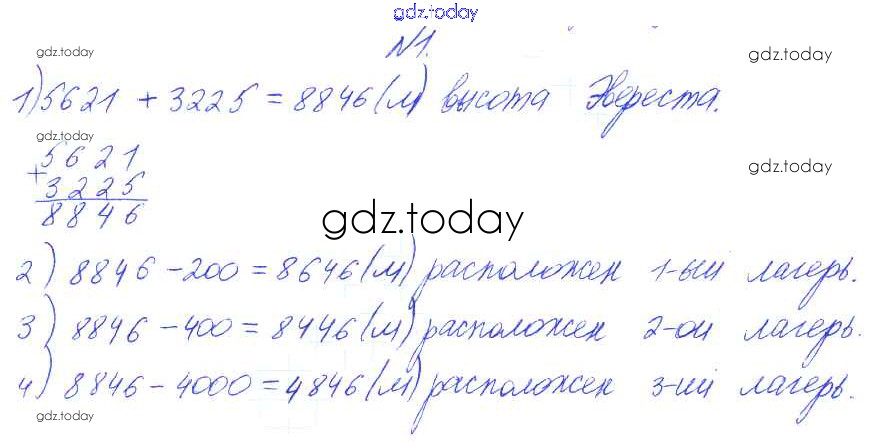 gdz.today
gdz.today
№1.
gdz.today
1) 5621 + 3225 = 8846 (м) высота Эвереста.
gdz.today
5621
+
3225
8846
gdz.today
gdz.today
2) 8846 - 200 = 8646 (м) расположен 1-ый лагерь.
3) 8846 - 400 = 8446 (м) расположен 2-ой лагерь.
4) 8846 - 4000 = 4846 (м) расположен 3-ий лагерь.
gdz.today